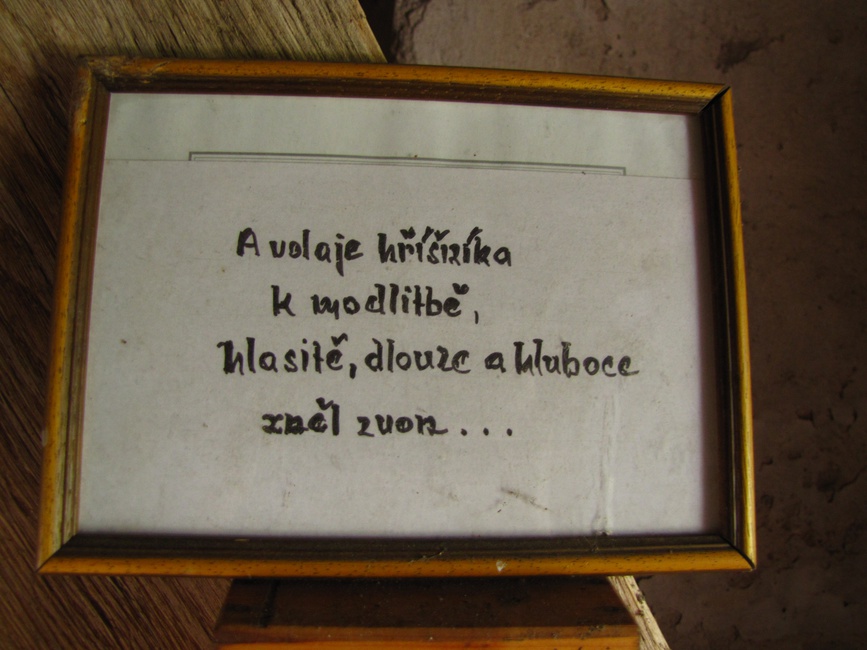 A volaje hříšníka
k modlitbě,
hlasitě, dlouze a hluboce
zněl zvon...